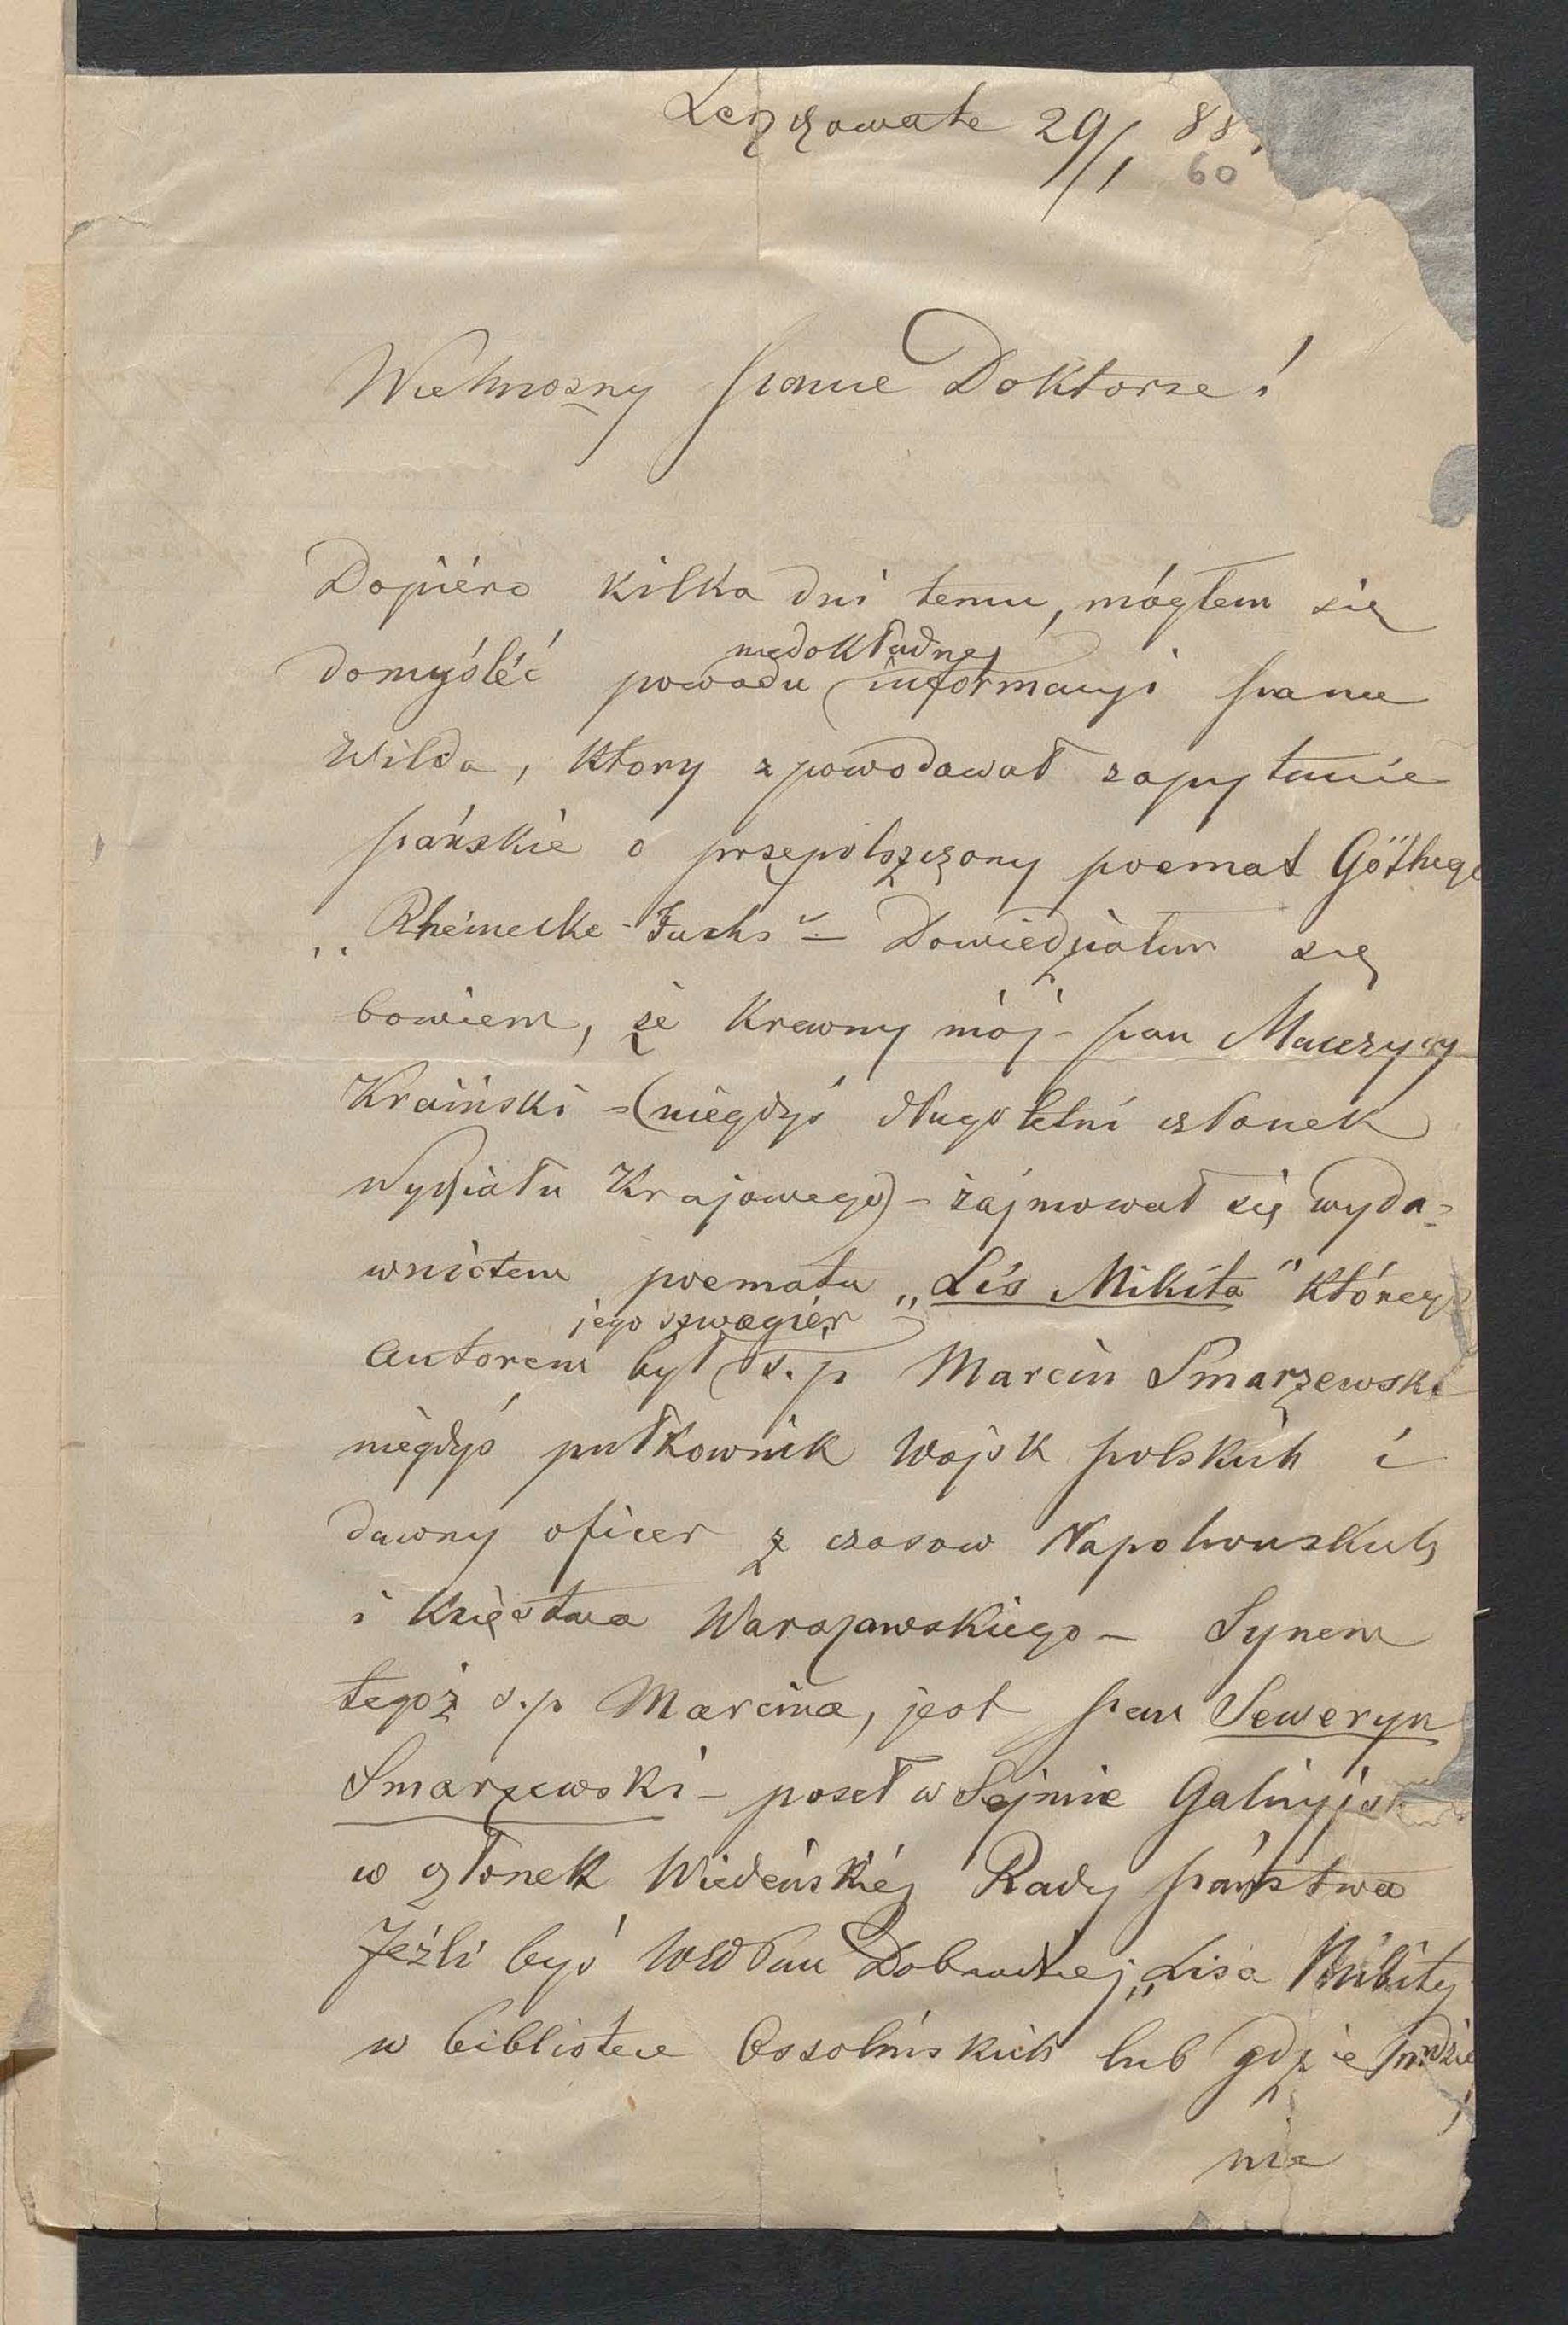 Leszczowate 29/1 88.
60
Wielmożny Panie Doktorze!
Dopiéro kilka dni temu, mógłem się
niedokładnej
domyśléć powodu informacyi pana
Wilda, ktory spowodował zapytanie
pańskie o przepolszczony poemat Göthego
„Rheinecke-Fuchs" – Dowiedziałem się
bowiem, że Krewny mój – pan Maurycy
Kraiński – (niegdyś długoletni członek
Wydziału Krajowego) – zajmował się wyda=
wnictem poematu „Lis Mikita" którego
jego szwagiér
autorem był ś.p Marcin Smarzewski
niegdyś pułkownik Wojsk polskich i
dawny oficer z czasow Napoleonskich
i Księstwa Warszawskiego – Synem
tegoż ś.p Marcina, jest pan Seweryn
Smarzewski – poseł w Sejmie Galicyjsk
członek Wiedeńskiéj Rady państwa
Jeźli byś WW Pan Dobrodziej „Lisa Mikity
w bibliotece Ossolińskich lub gdzie indzie
nie